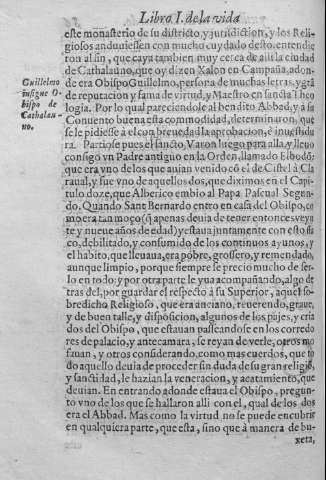 Libro I. de la vida
este monasterio de su districto, y jurisdicion, y los Reli
giosos anduuiessen con mucho cuydado desto, entendie
ron al fin, que caya tambien muy cerca de alli la ciudad
de Cathalauno, que oy dizen Xalon en Campaña, adon
de era Obispo Guillelmo, persona de muchas letras, y grã
de reputacion y fama de virtud, y Maestro en sancta Theo
logia. Por lo qual pareciendole al bendito Abbad, y à su
Conuento buena esta commodidad, determinaron, que
se le pidiesse à el con breuedad la aprobacion, è inuestidu
ra. Partiose pues el sancto Varon luego para alla, y lleuo
consigo vn Padre antiguo en la Orden, llamado Elbodõ:
que era vno de los que auian venido cõ el de Cistel à Cla
raual, y fue vno de aquellos dos, que diximos en el Capi
tulo doze, que Alberico embio al Papa Pascual Segun-
do. Quando Sant Bernardo entro en casa del Obispo, co
mo era tan moço (q̃ apenas deuia de tener entonces veyn
te y nueue años de edad) y estaua juntamente con esto fla
co, debilitado, y consumido de los continuos ayunos, y
el habito, que lleuaua, era pobre, grossero, y remendado,
aunque limpio, porque siempre se precio mucho de ser-
lo en todo; y por otra parte le yua acompañando, algo de
tras del, por guardar el respecto à su Superior, aquel so-
bredicho Religioso, que era anciano, reuerendo, graue,
y de buen talle, y disposicion, algunos de los pajes, y cria
dos del Obispo, que estauan passeandose en los corredo
res de palacio, y antecamara, se reyan de verle, otros mo
fauan, y otros considerando, como mas cuerdos, que to
do aquello deuia de proceder sin duda de su gran religiõ,
y sanctidad, le hazian la veneracion, y acatamiento, que
deuian. En entrando adonde estaua el Obispo, pregun-
to vno de los que se hallaron alli con el, qual de los dos
era el Abbad. Mas como la virtud no se puede encubrir
en qualquiera parte, que esta, sino que à manera de bu-
xeta,
Guillelmo
insigne O-
bispo de
Cathalau-
no.